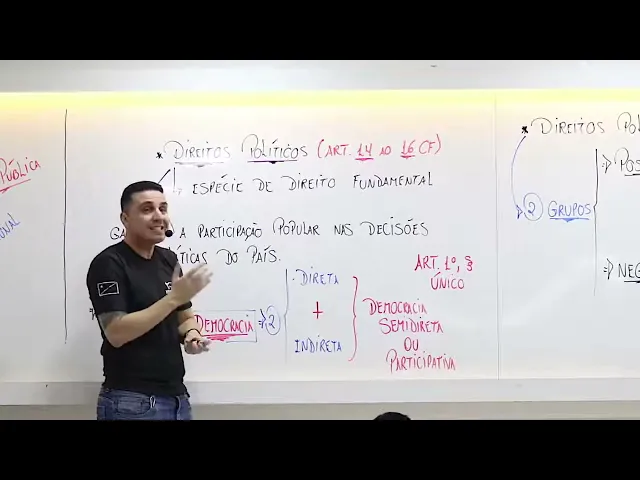 PÚBLICA
* DIREITOS POLÍTICOS (ART. 14 AO 16 CF)
ESPÉCIE DE DIREITO FUNDAMENTAL
A PARTICIPAÇÃO POPULAR NAS DECISÕES
DO PAÍS.
DEMOCRACIA => 2
· DIRETA
+
INDIRETA
ART. 1º, §
ÚNICO
DEMOCRACIA
SEMIDIRETA
OU
PARTICIPATIVA
* DIREITOS
2 GRUPOS